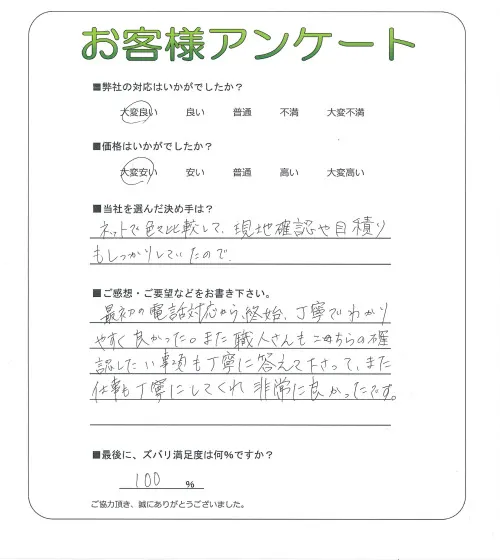 お客様アンケート
■弊社の対応はいかがでしたか？
大変良い 良い 普通 不満 大変不満
■価格はいかがでしたか？
大変安い 安い 普通 高い 大変高い
■当社を選んだ決め手は？
ネットで色々比較して、現地確認や目積り
もしっかりしていたので
■ご感想・ご要望などをお書き下さい。
最初の電話対応から、終始、丁寧でわかり
やすく良かった。また職人さんもこちらの確
認したい事項も丁寧に答えて下さって、また
仕事も丁寧にしてくれ非常に良かったです。
■最後に、ズバリ満足度は何%ですか？
100 %
ご協力頂き、誠にありがとうございました。